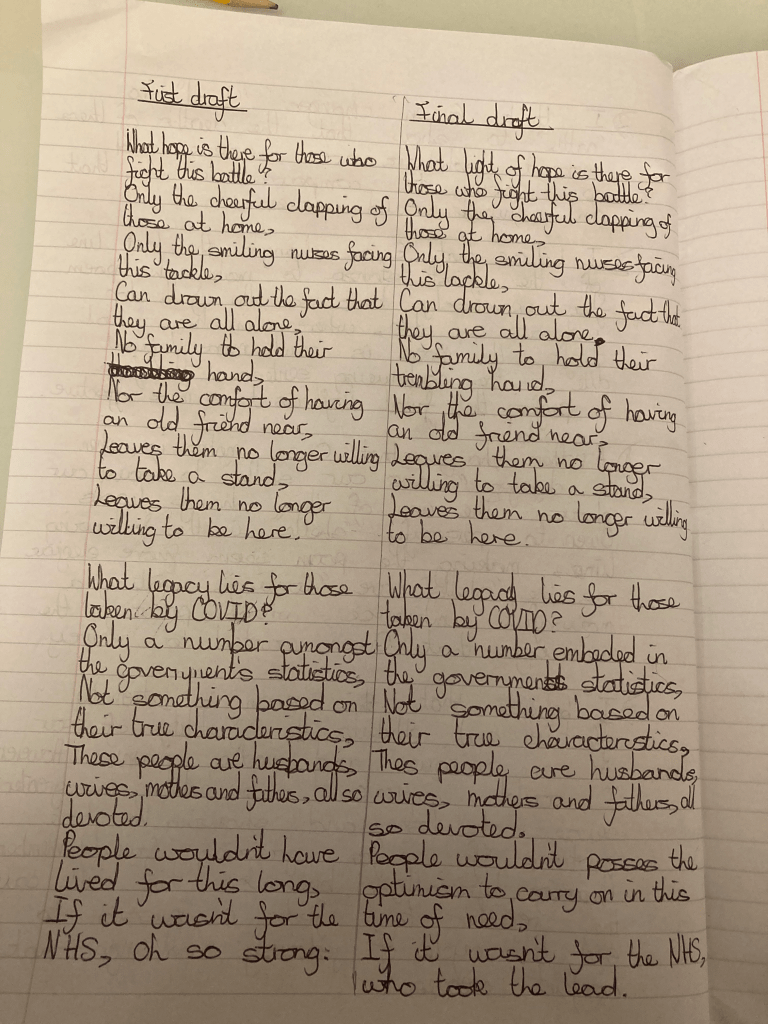 First draft
What hope is there for those who
fight this battle?
Only the cheerful clapping of
those at home,
Only the smiling nurses facing
this tackle,
Can drown out the fact that
they are all alone,
No family to hold their
hand,
Nor the comfort of having
an old friend near,
Leaves them no longer willing
to take a stand,
Leaves them no longer
willing to be here.
What legacy lies for those
taken by COVID?
Only a number amongst
the government's statistics,
Not something based on
their true characteristics,
These people are husbands,
wives, mothes and fathers, all so
devoted.
People wouldn't have
lived for this long,
If it wasn't for the
NHS, oh so strong.
Final draft
What light of hope is there for
those who fight this battle?
Only the cheerful clapping of
those at home,
Only the smiling nurses facing
this tackle,
Can drown out the fact that
they are all alone.
No family to hold their
trenbling hand,
Nor the comfort of having
an old friend near,
Leaves them no longer
willing to take a stand,
Leaves them no longer willing
to be here.
What legacy lies for those
taken by COVID?
Only a number embeded in
the government statistics,
Not something based on
their true characterstics,
Thes people are husbands,
wives, mothers and fathers, all
so devoted.
People wouldn't posses the
optimism to carry on in this
time of need,
If it wasn't for the NHS,
who took the lead.